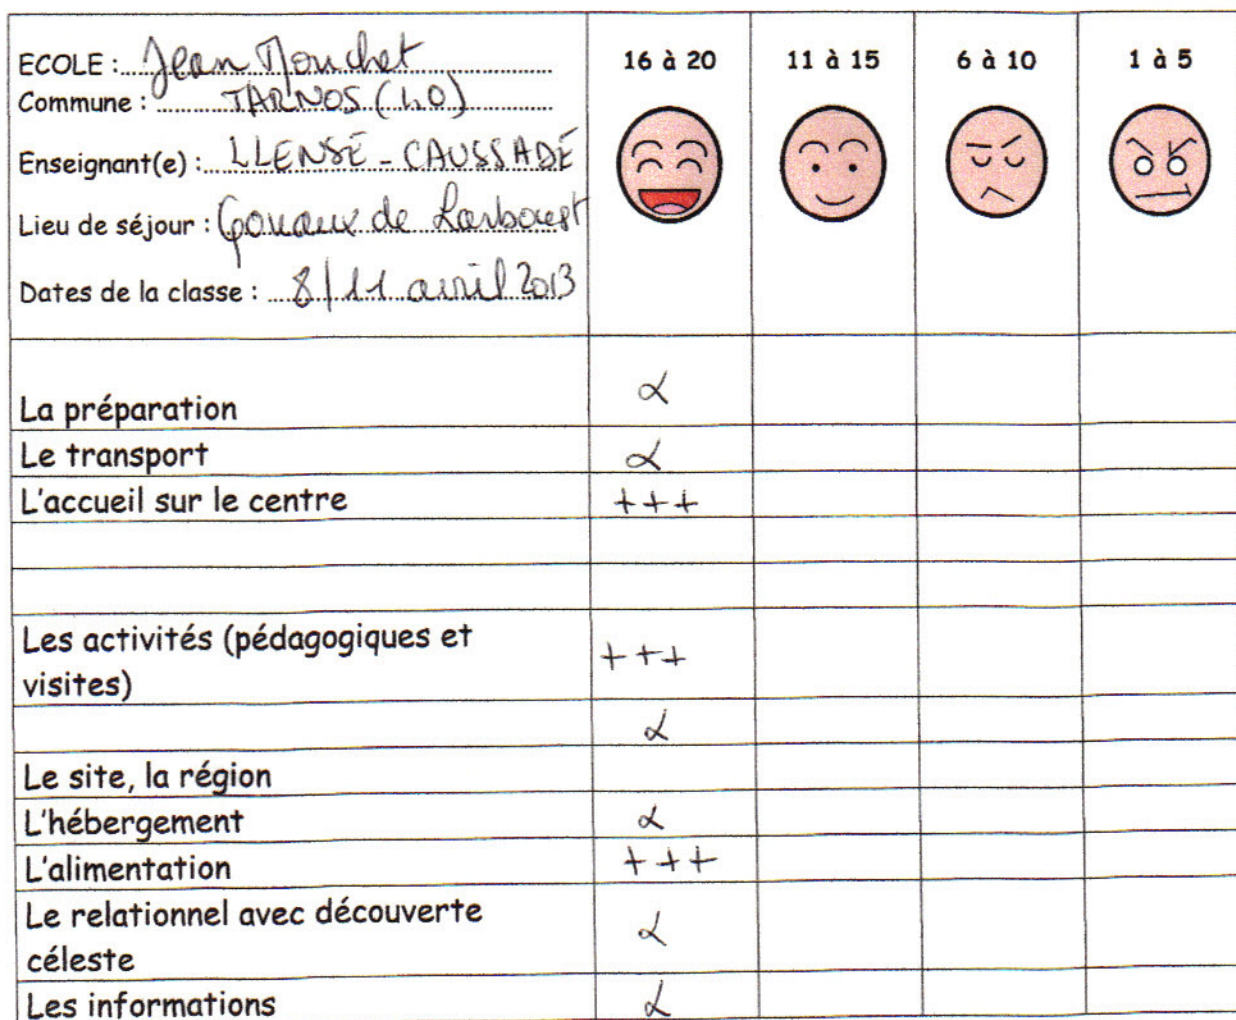 ECOLE : Jean Mouchet 16 à 20 11 à 15 6 à 10 1 à 5
Commune : TARNOS (40)
Enseignant(e) : LLENSE - CAUSSADE
Lieu de séjour : Gouaux de Larboust
Dates de la classe : 8/11 avril 2013
La préparation x
Le transport x
L'accueil sur le centre +++
Les activités (pédagogiques et
visites) +++
x
Le site, la région
L'hébergement x
L'alimentation +++
Le relationnel avec découverte
céleste x
Les informations x